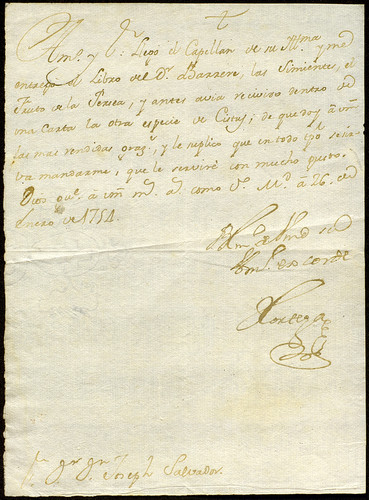 Am.º y S.r: Llegó el Capellan de su Ill.ma y me
entregó el Libro del D.r Barrere, las Simientes, el
fruto de la Persea, y antes avia recivido dentro de
una Carta la otra especie de Cistus; de que doy à vm
las mas rendidas graz.s, y le replico que en todo tpo se sir-
va mandarme, que le serviré con mucho gusto.
Dios gu.e à vm m.s a.s como d.o M.d à 26 de
Enero de 1754.
de vm su
de corde
Ortega
S.r D.n Joseph Salvador.